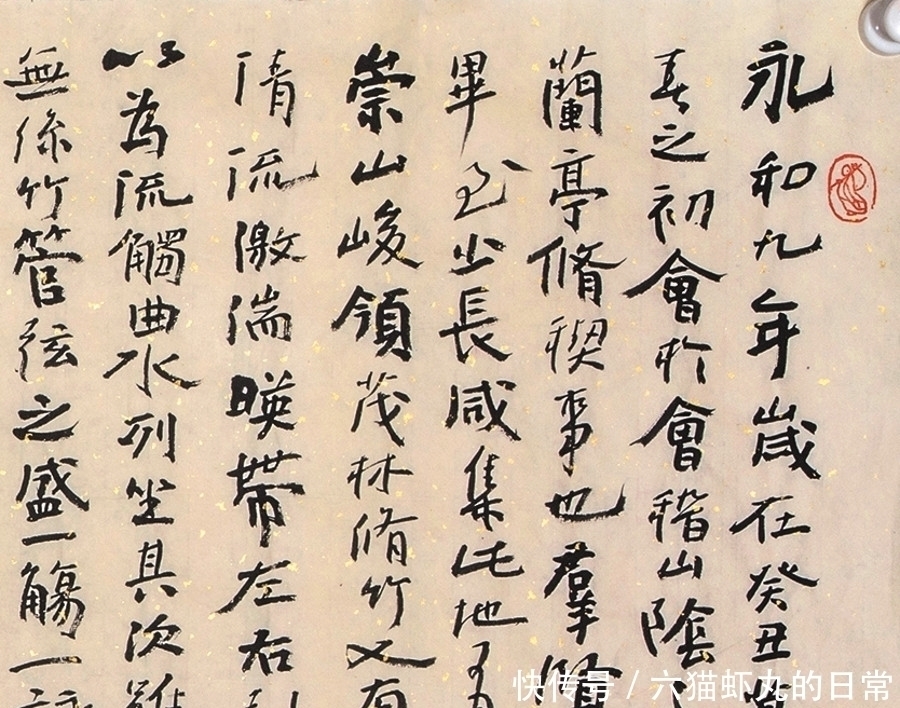 永和九年歲在癸丑暮
春之初會於會稽山陰
蘭亭脩稧事也羣賢
畢至少長咸集此地有
崇山峻領茂林脩竹又有
清流激湍暎帶左右引
以為流觴曲水列坐其次雖
無絲竹管弦之盛一觴一詠
快传号 / 六猫虾丸的日常